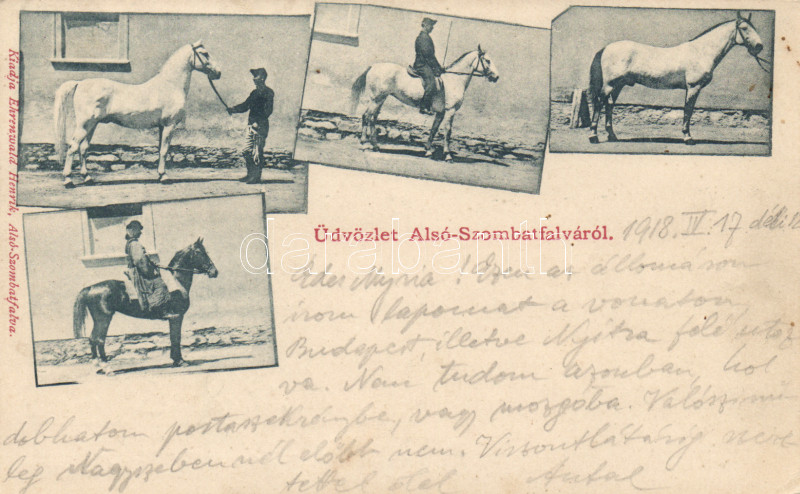 Kiadja Ehrenwald Henrik, Alsó-Szombatfalva.
Üdvözlet Alsó-Szombatfalváról.
1918. IV. 17 déli 12
Édes Nyria! Ezen az állomáson
irom lapomat a vonaton,
Budapest, illetve Nyitra felé utaz
va. Nem tudom azonban, hol
dobhatom postaszekrénybe, vagy mozgóba. Valószinü
leg Nagyszebennél előbb nem. Viszontlátásig szere
tettel ölel Antal
darabanth